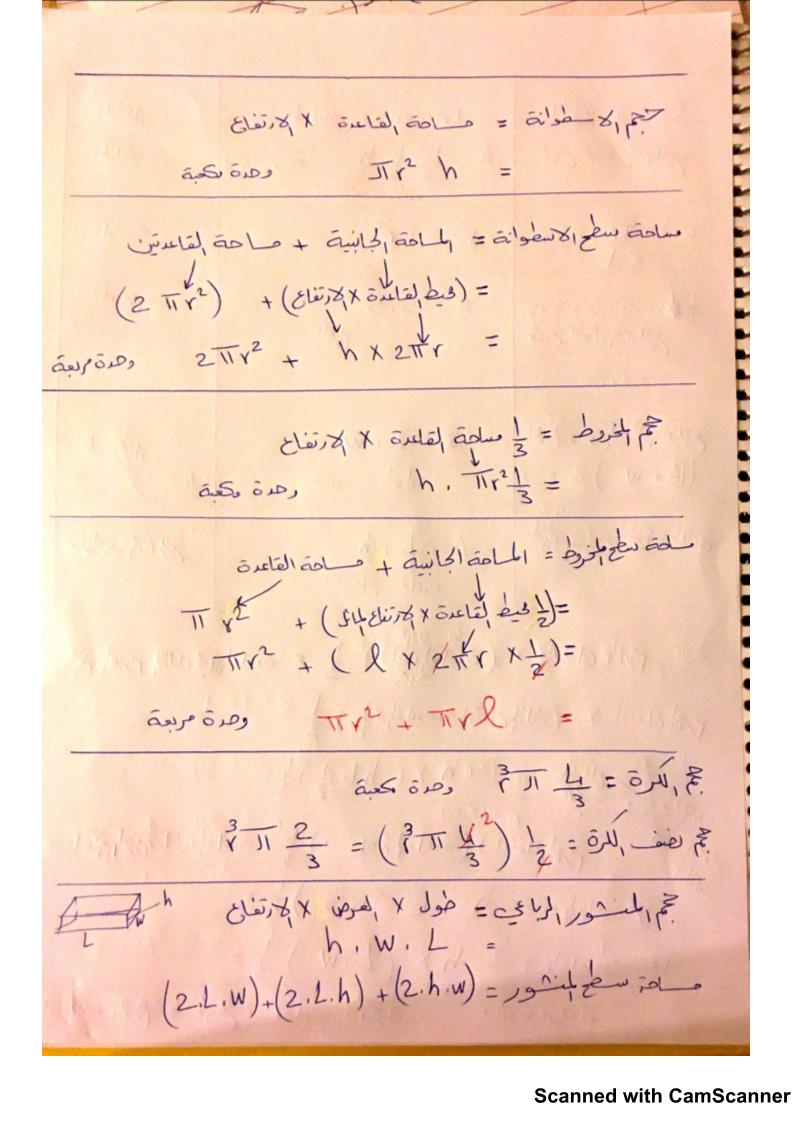 حجم الاسطوانة = مساحة القاعدة × الارتفاع
= πr² h وحدة مكعبة
مساحة سطح الاسطوانة = المساحة الجانبية + مساحة القاعدتين
= (محيط القاعدة × الارتفاع) + (2 πr²)
= h × 2πr + 2πr² وحدة مربعة
حجم المخروط = 1/3 مساحة القاعدة × الارتفاع
= 1/3 πr² . h وحدة مكعبة
مساحة سطح المخروط = المساحة الجانبية + مساحة القاعدة
= (1/2 محيط القاعدة × الارتفاع المائل) + π r²
= (1/2 × 2πr × l) + πr²
= πr² + πrl وحدة مربعة
حجم الكرة = 4/3 π r³ وحدة مكعبة
حجم نصف الكرة = 1/2 (4/3 π r³) = 2/3 π r³
2
حجم المنشور الرباعي = طول × العرض × الارتفاع
h
w
L
= h . w . L
مساحة سطح المنشور = (2.L.w)+(2.L.h)+(2.h.w)
Scanned with CamScanner